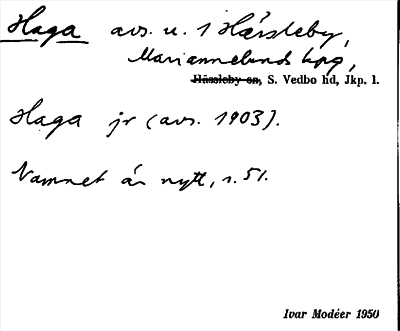 Haga avs. u. 1 Hässleby,
Mariannelunds kpg,
Hässleby sn, S. Vedbo hd, Jkp. l.
Haga jr (avs. 1903).
Namnet är nytt, s. 51.
Ivar Modéer 1950